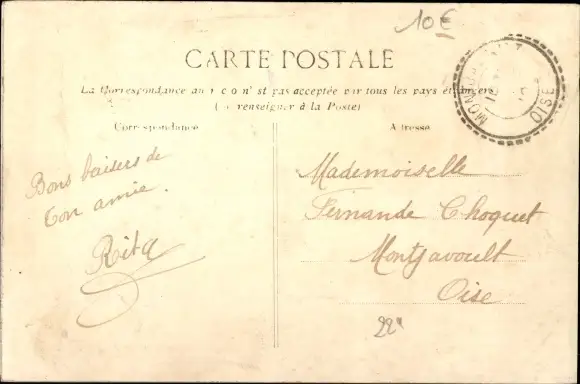 10 €
CARTE POSTALE
La Correspondance au r c o n' st pas acceptée par tous les pays étrangers
(S renseigner à la Poste)
Correspondance
Adresse
OISE
Bons baisers de
ton amie.
Rita
Mademoiselle
Fernande Choquet
Montjavoult
Oise
22"